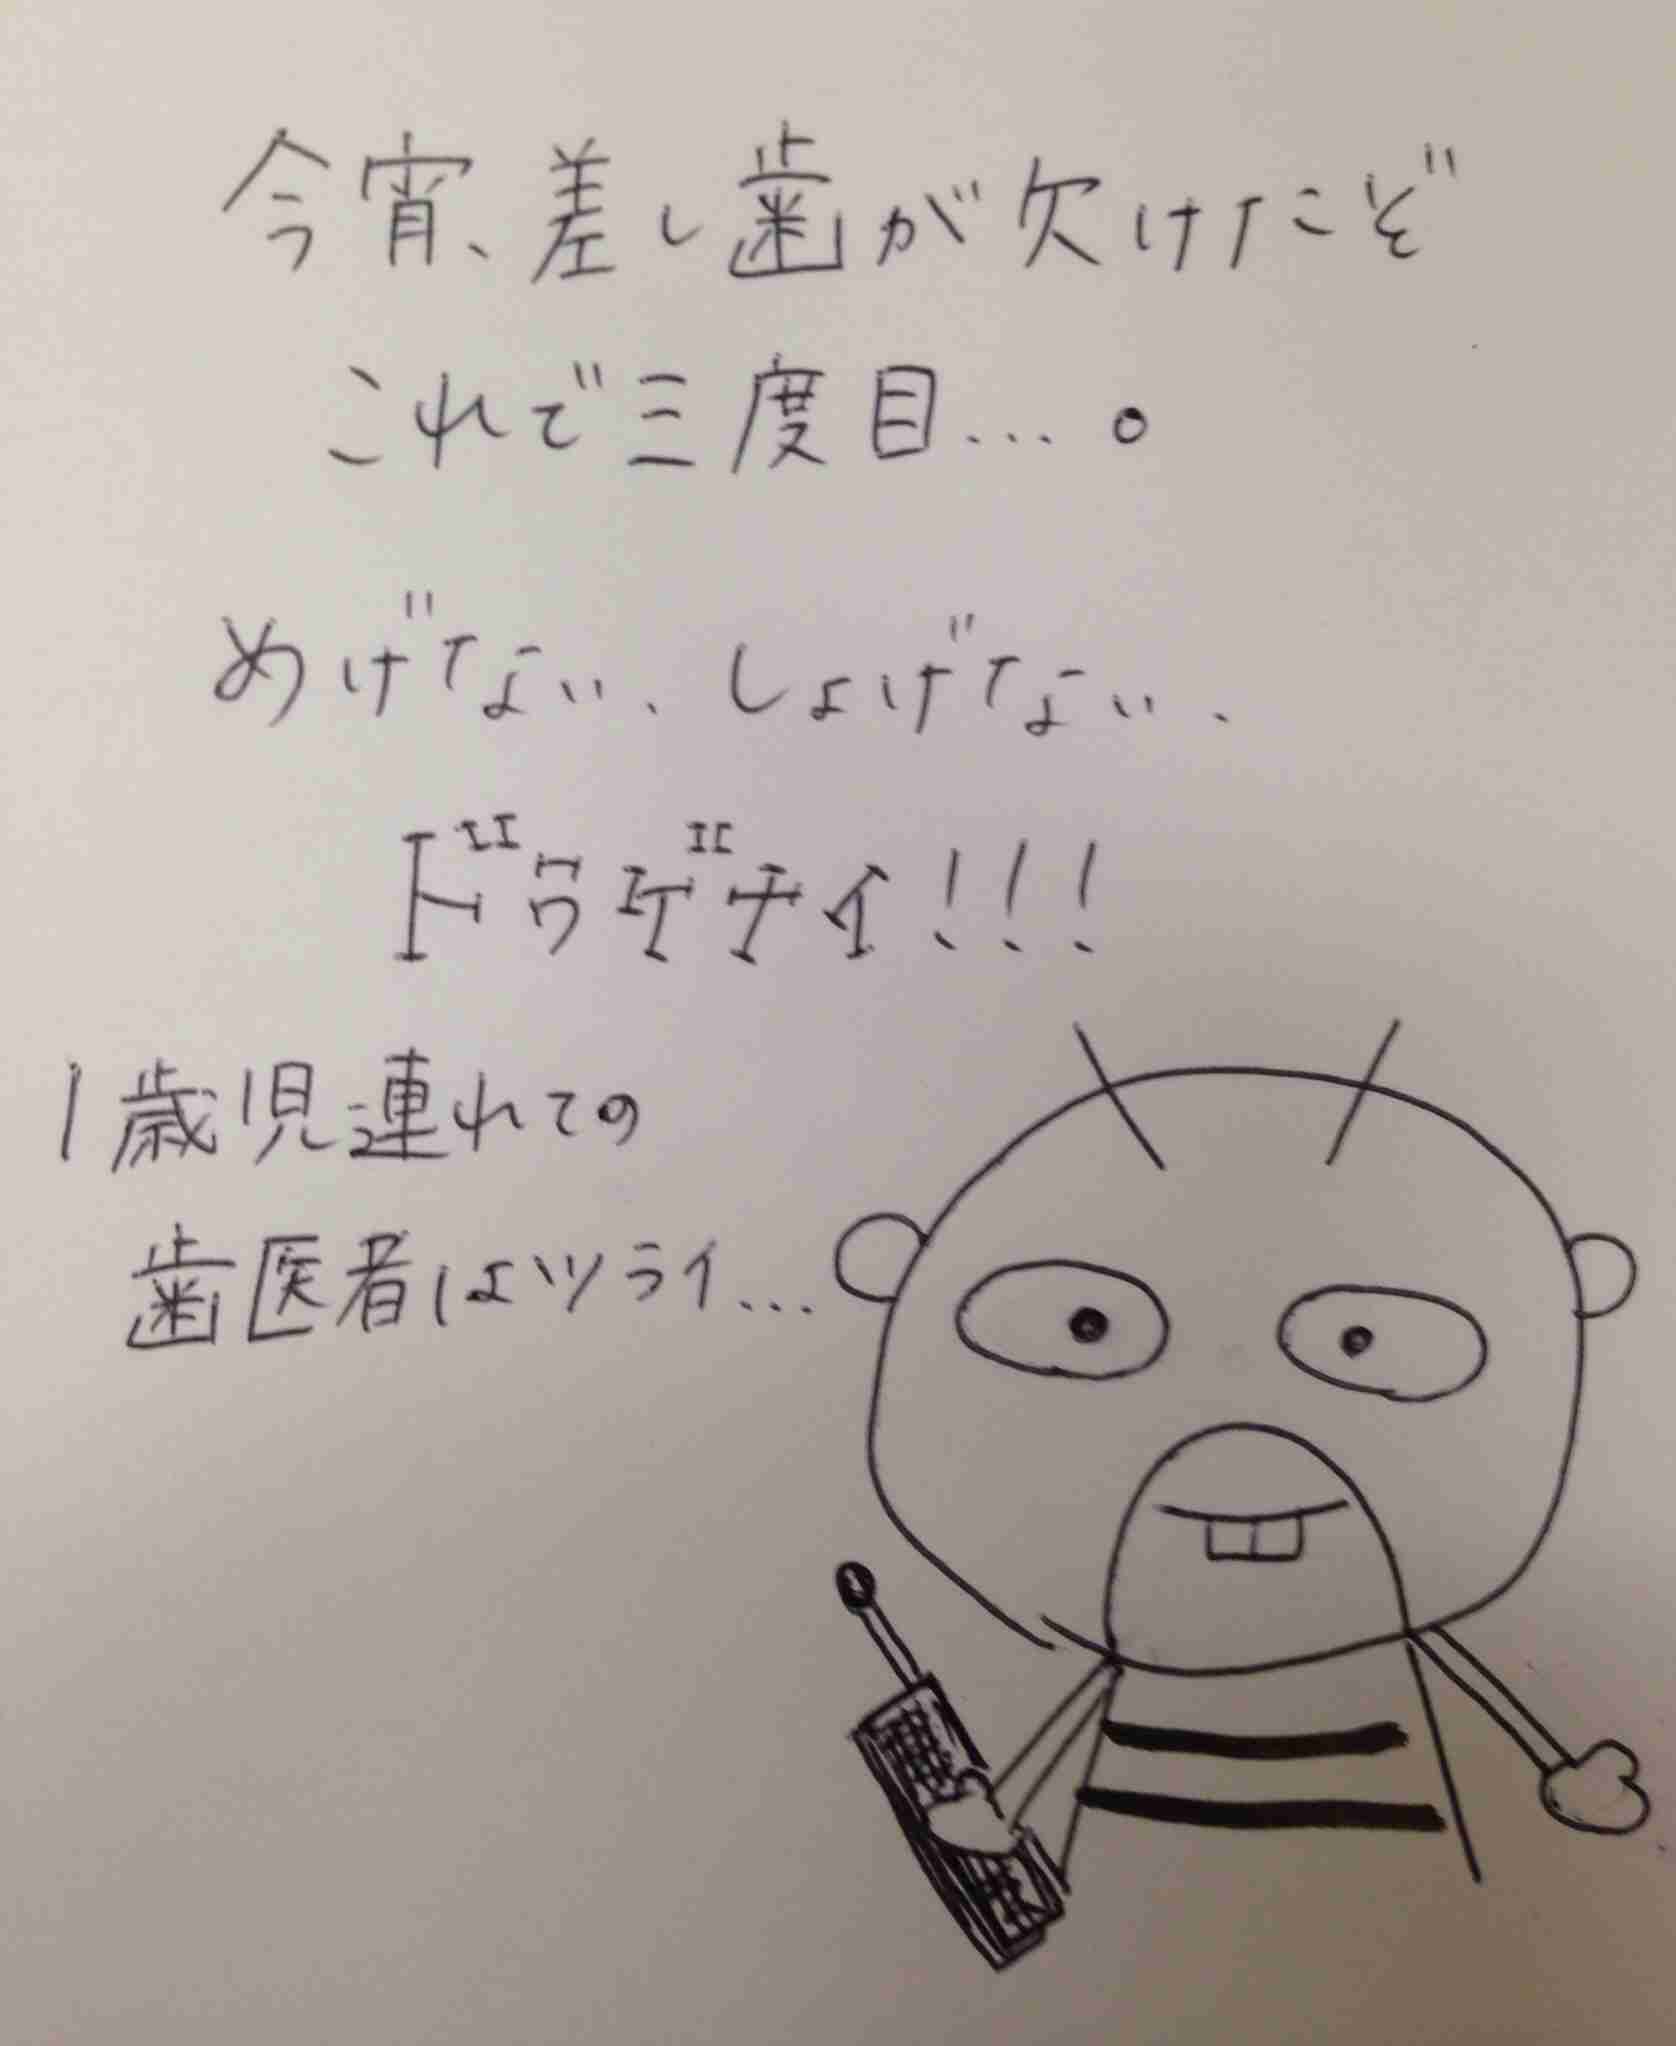 今宵、差し歯が欠けたぞ
これで三度目…。
めげない、しょげない、
ドゥゲナイ!!!
1歳児連れての
歯医者はツライ…